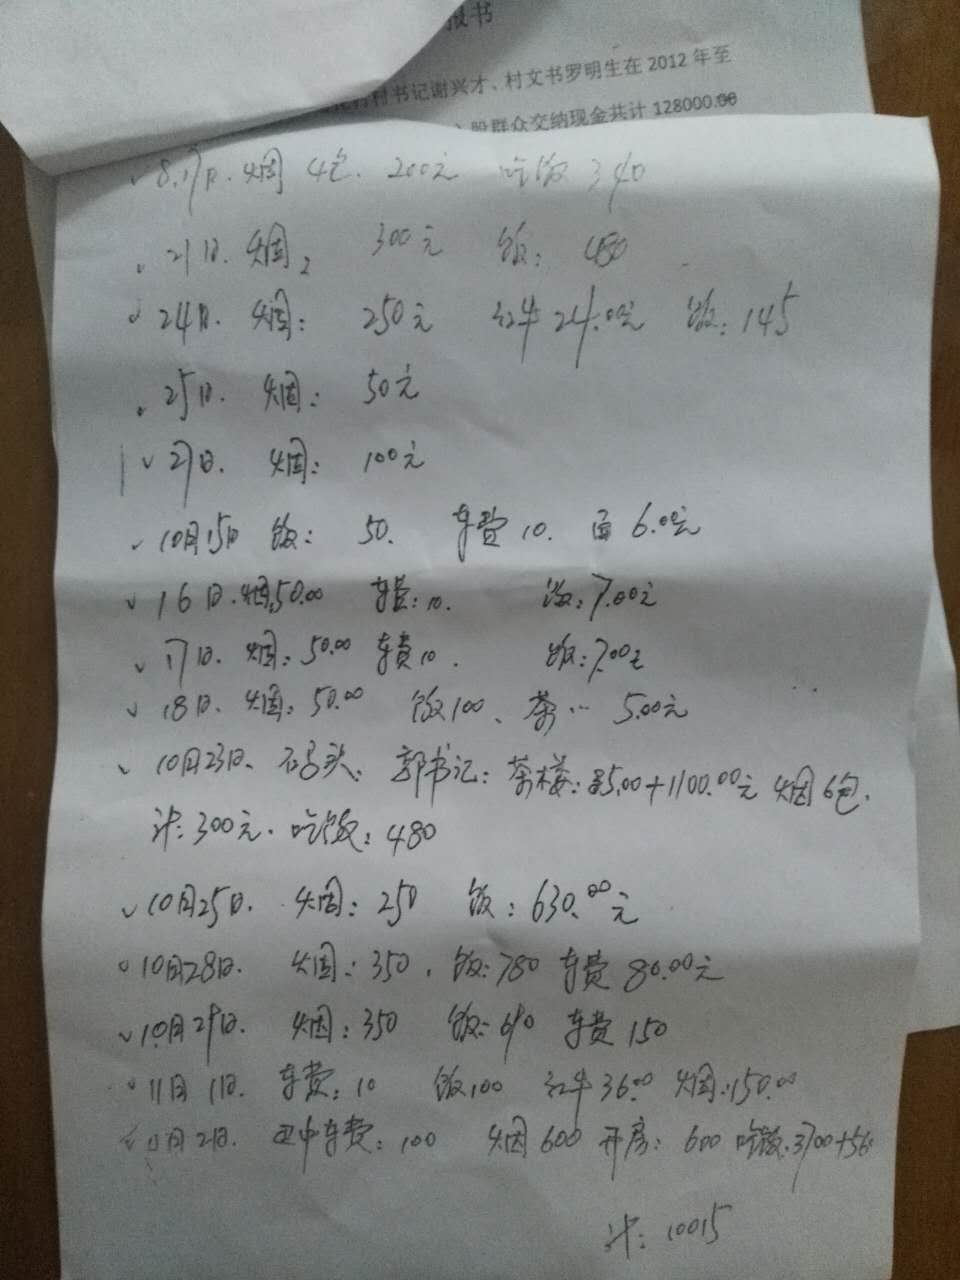 报书
村书记谢兴才、村文书罗明生在 2012 年至
股群众交纳现金共计 128000.00
8.17日.烟 4包. 200元 吃饭 340
21日.烟, 300元 饭: 480
24日. 烟: 250元 红牛24.00元 饭:145
25日. 烟: 50元
27日. 烟: 100元
10月15日 饭: 50. 车费 10. 面 6.00元
16日.烟50.00 车费:10. 饭:7.00元
17日. 烟:50.00 车费10. 饭:7.00元
18日. 烟:50.00 饭100、茶 5.00元
10月23日、石马头: 郭书记:茶楼:85.00+1100.00元 烟6包.
计:300元.吃饭:480
10月25日. 烟:250 饭:630.00元
10月28日. 烟:350. 饭:780 车费 80.00元
10月29日. 烟:350 饭: 车费 150
11月1日. 车费:10 饭100 红牛36.00 烟:150.00
11月2日. 车费:100 烟600 开房:600 吃饭:3700+56
计:10015